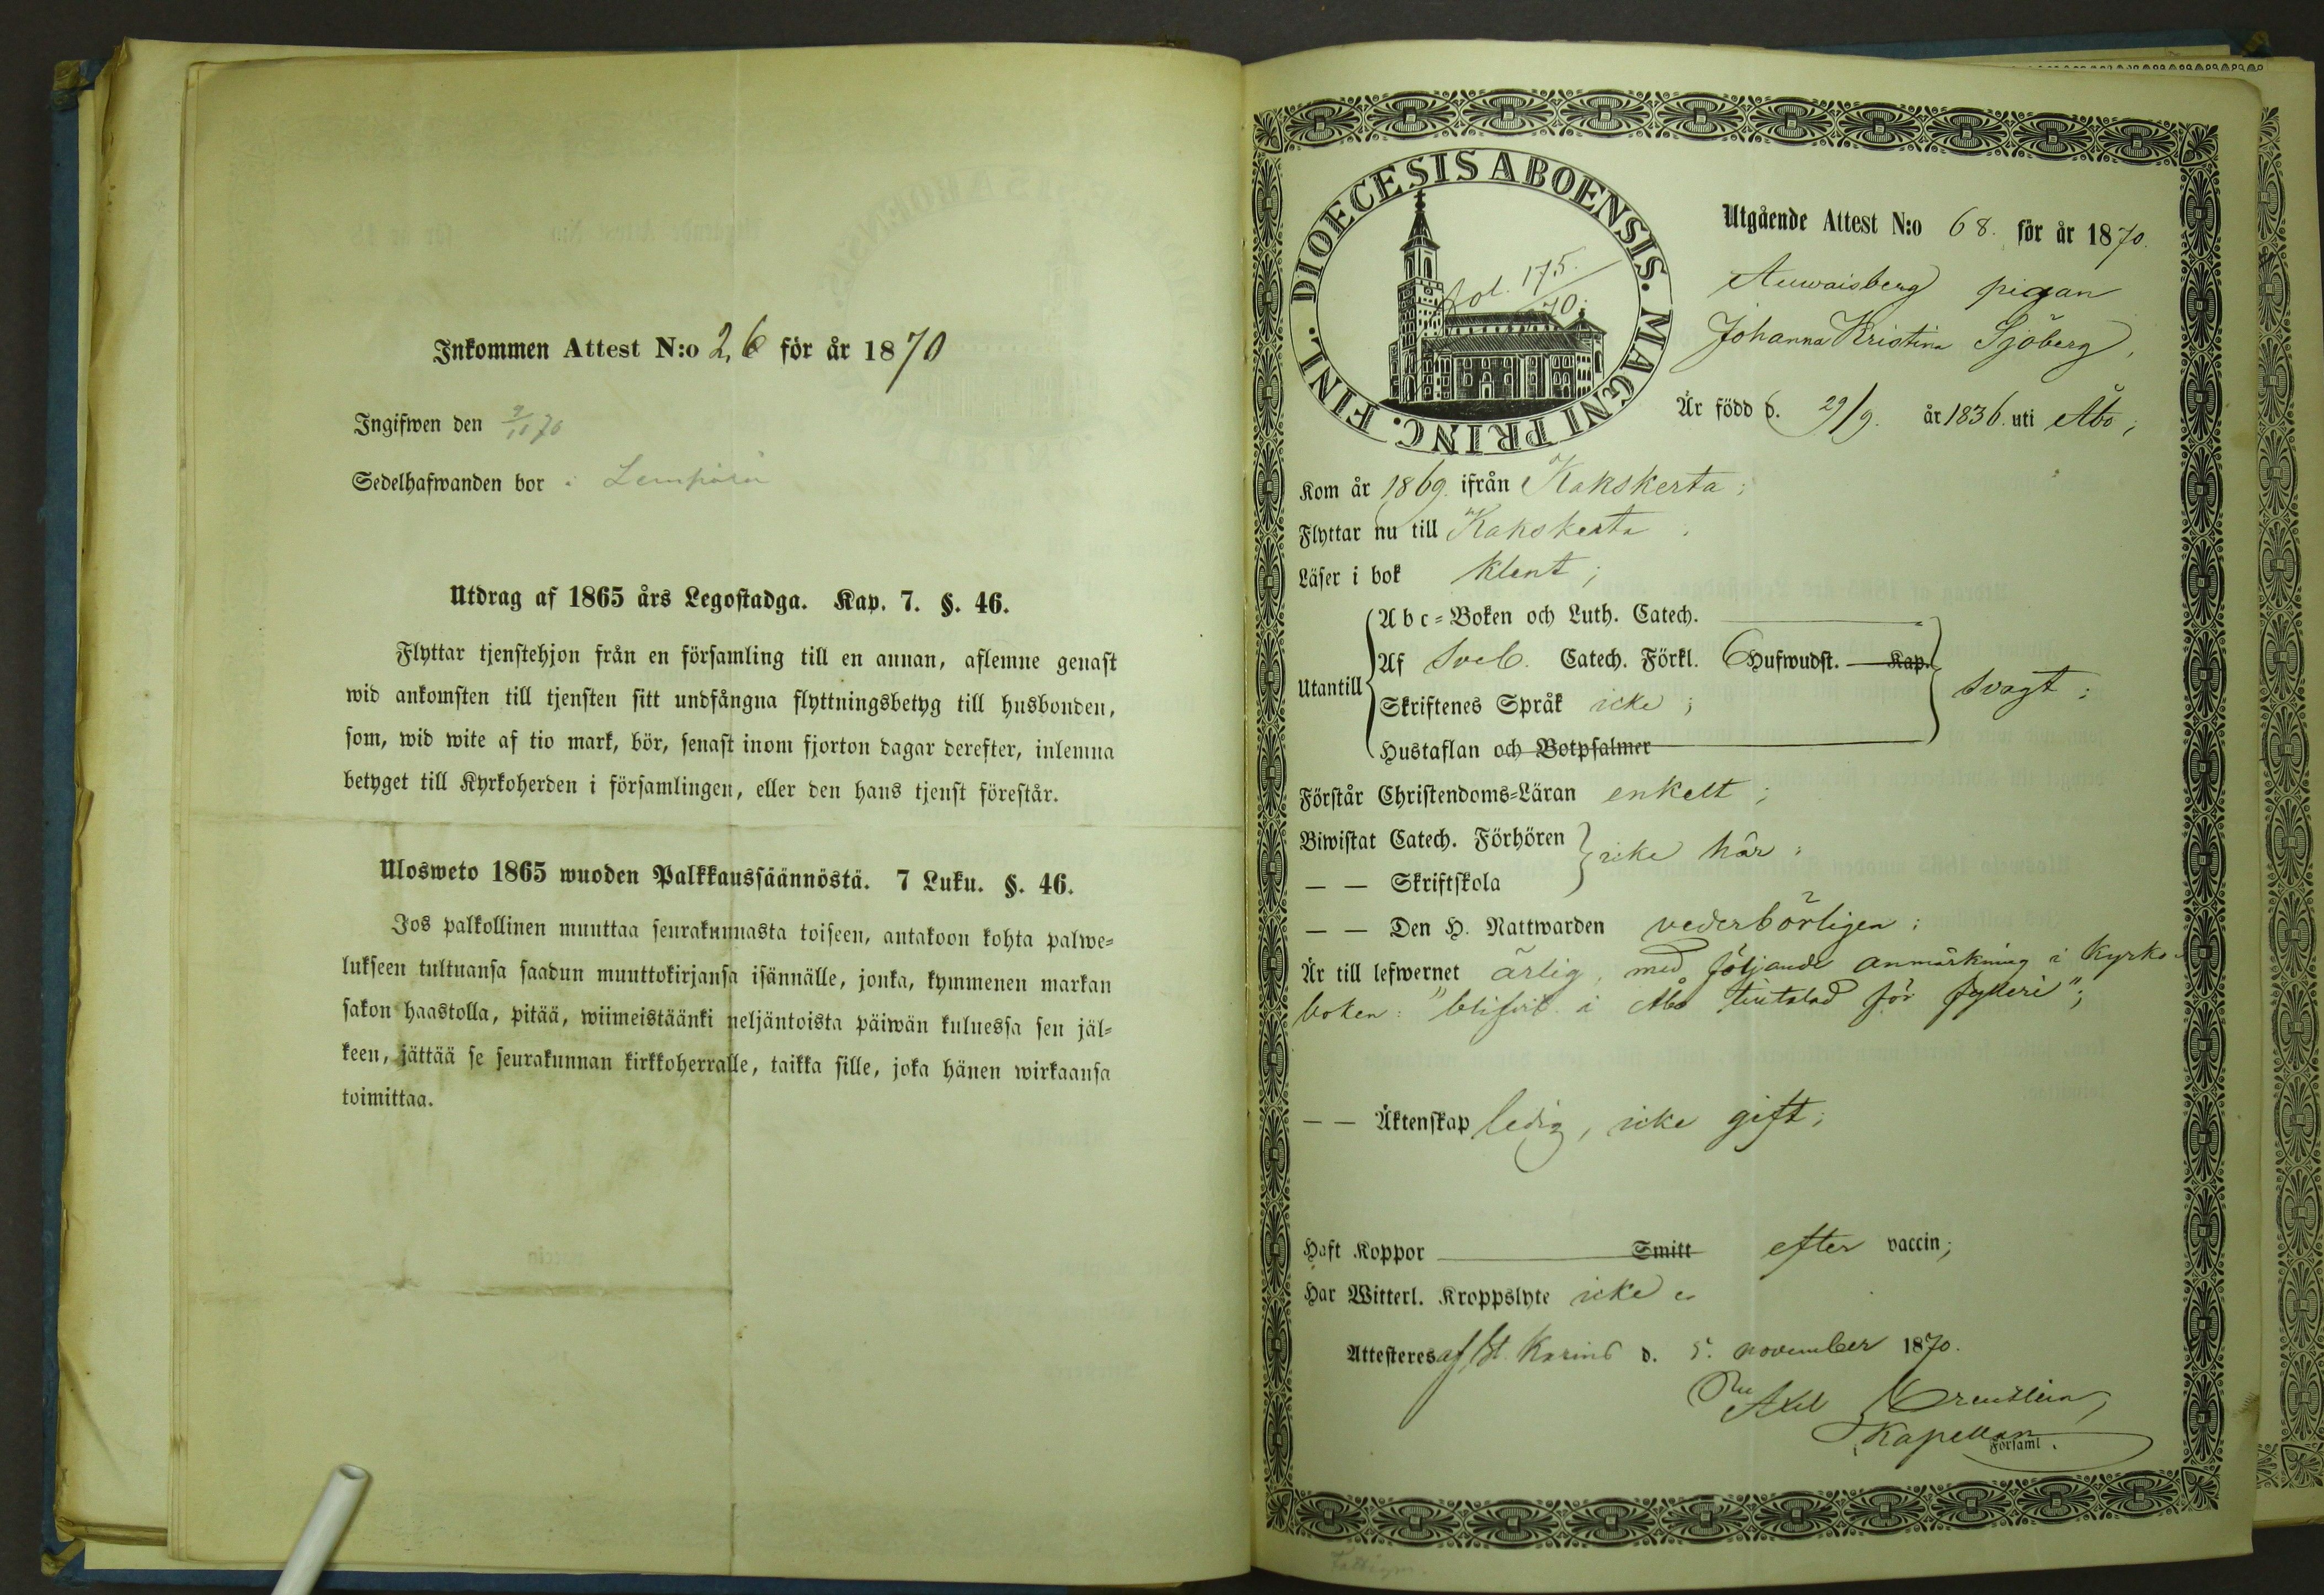 Inkommen Attest N:o 26 för år 1870
Ingifwen den 9/11 70
Sedelhafwanden bor i
Utdrag af 1865 års Legostadga. Kap. 7. §. 46.
Flyttar tjenstehjon från en församling till en annan, aflemne genast
wid ankomsten till tjensten sitt undfångna flyttningsbetyg till husbonden,
som, wid wite af tio mark, bör, senast inom fjorton dagar derefter, inlemna
betyget till Kyrkoherden i församlingen, eller den hans tjenst förestår.
Ulosweto 1865 wuoden Palkkaussäännöstä. 7 Luku. §. 46.
Jos palkollinen muuttaa seurakunnasta toiseen, antakoon kohta palwe=
lukseen tultuansa saadun muuttokirjansa isännälle, jonka, kymmenen markan
sakon haastolla, pitää, wiimeistäänki neljäntoista päiwän kuluessa sen jäl=
keen, jättää se seurakunnan kirkkoherralle, taikka sille, joka hänen wirkaansa
toimittaa.
DIOECESIS ABOENSIS. MAGNI PRINC. FINL.
fol. 175.
70.
Utgående Attest N:o 68. för år 1870.
Auwaisberg pigan
Johanna Kristina Sjöberg,
Är född d. 29/9. år 1836. uti Åbo;
Kom år 1869. ifrån Kakskerta;
Flyttar nu till Kakskerta.
Läser i bok klent;
Utantill
Abc=Boken och Luth. Catech.
Af Sveb. Catech. Förkl. 6 Hufwudst. Kap.
Skriftenes Språk icke;
Hustaflan och Botpsalmer
svagt;
Förstår Christendoms=Läran enkelt;
Biwistat Catech. Förhören
— — Skriftskola
icke här;
— — Den H. Nattwarden vederbörligen;
Är till lefwernet ärlig, med följande anmärkning i Kyrko-
boken: "blifvit i Åbo för fylleri";
— — Äktenskap ledig, icke gift;
Haft Koppor Smitt efter vaccin;
Har Witterl. Kroppslyte icke
Attesteras af St. Karins d. 5. november 1870.
Axel
Kapellan
i Församl.